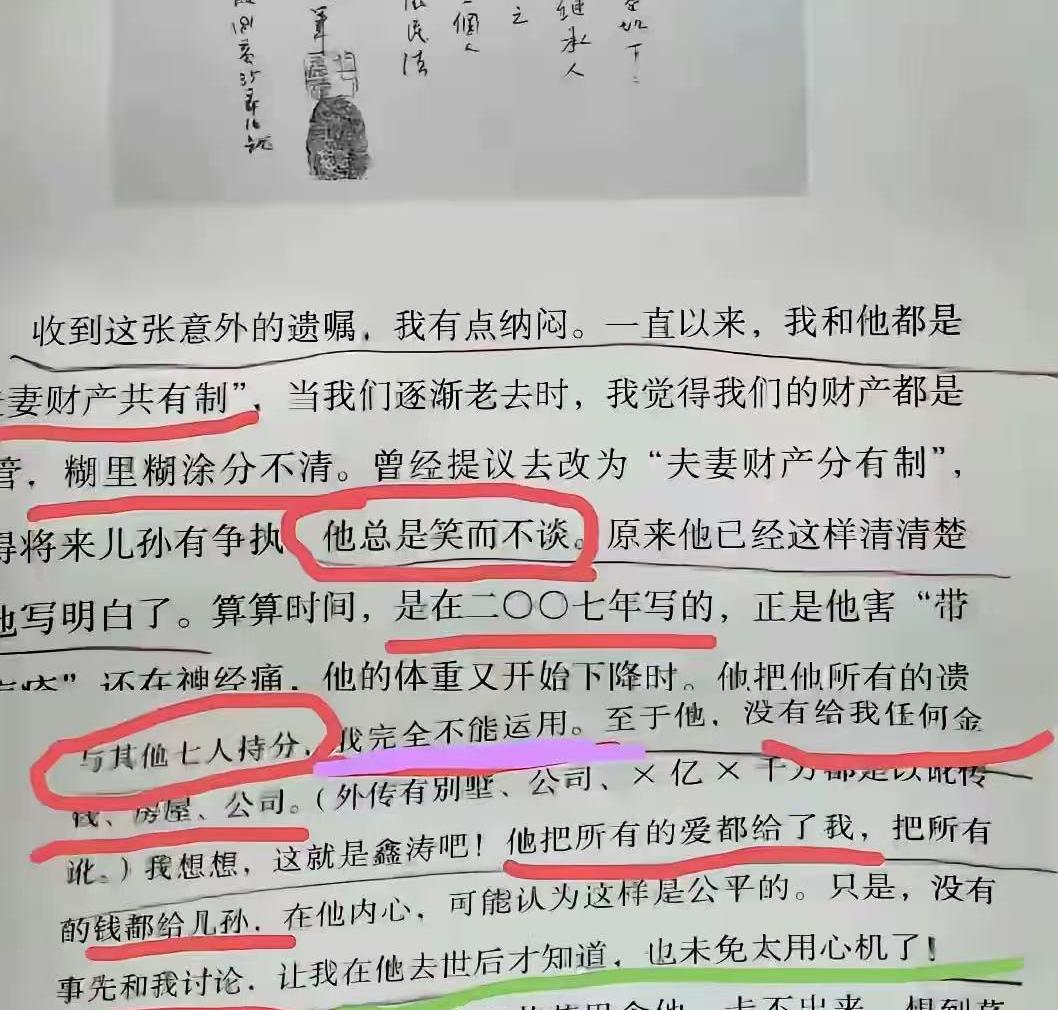 下：
继承人
之
一個人
依民法
收到这张意外的遗嘱，我有点纳闷。一直以来，我和他都是
妻财产共有制”，当我们逐渐老去时，我觉得我们的财产都是
管，糊里糊涂分不清。曾经提议去改为“夫妻财产分有制”，
得将来儿孙有争执 他总是笑而不谈。原来他已经这样清清楚
地写明白了。算算时间，是在二〇〇七年写的，正是他害“带
疹”还在神经痛，他的体重又开始下降时。他把他所有的遗
与其他七人持分，我完全不能运用。至于他，没有给我任何金
钱、房屋、公司。（外传有别墅、公司、×亿×千万都是以讹传
讹。）我想想，这就是鑫涛吧！他把所有的爱都给了我，把所有
的钱都给儿孙，在他内心，可能认为这样是公平的。只是，没有
事先和我讨论，让我在他去世后才知道，也未免太用心机了！